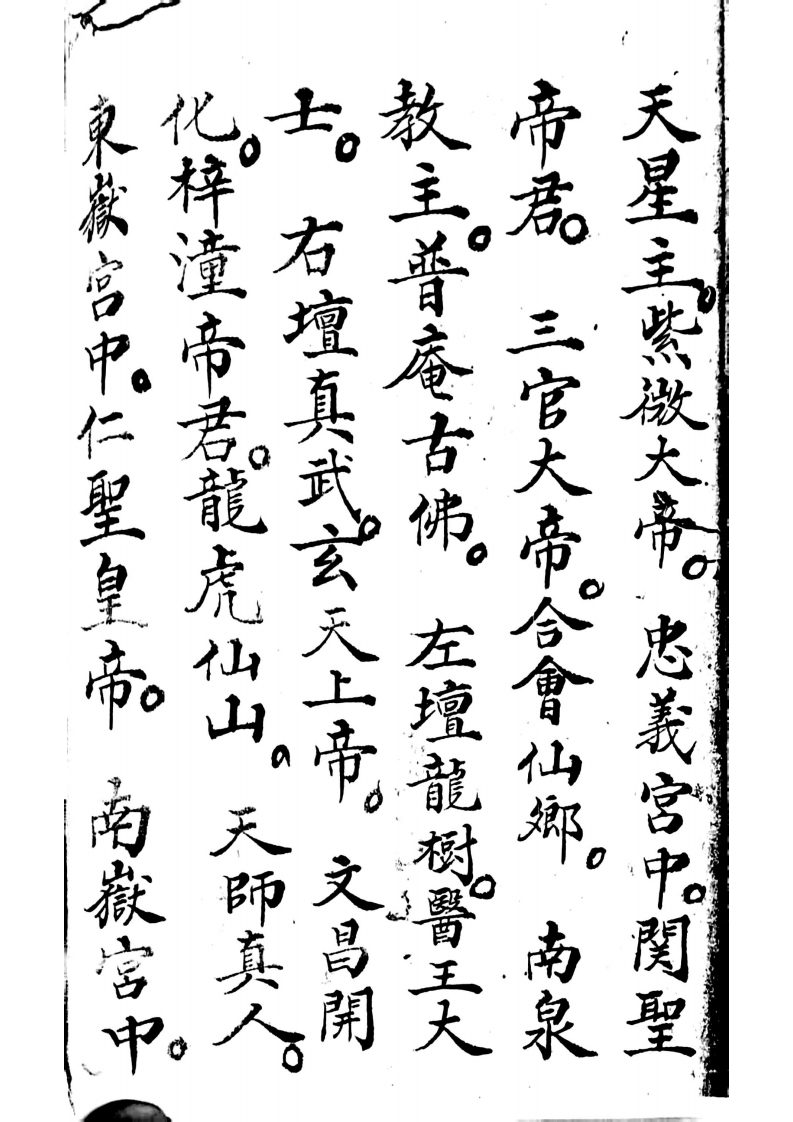 天星主。紫微大帝。 忠義宮中。関聖
帝君。 三官大帝。合會仙鄉。 南泉
教主。普庵古佛。 左壇龍樹。醫王大
士。 右壇真武。玄天上帝。 文昌開
化。梓潼帝君。龍虎仙山。 天師真人。
東嶽宮中。仁聖皇帝。 南嶽宮中。